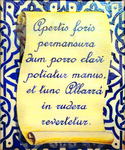 Apertis foris
permansura
dum porro clavi
potiatur manus,
et tunc Albarrá
in rudera
revertetur.